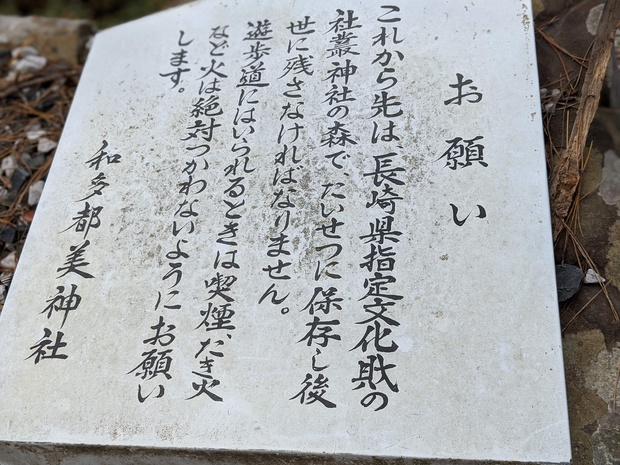 お願い
これから先は、長崎県指定文化財の
社叢神社の森で、たいせつに保存し後
世に残さなければなりません。
遊歩道にはいられるときは喫煙、たき火
など火は絶対つかわないようにお願い
します。
和多都美神社